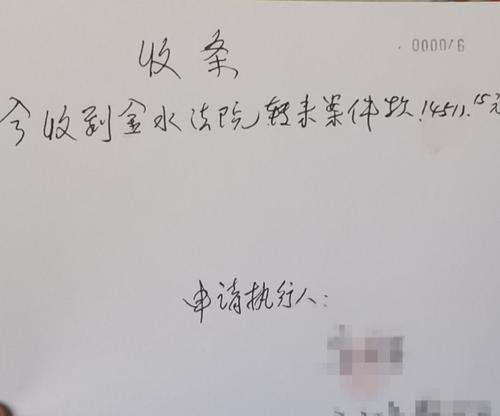 收条
000016
今收到金水法院转来案件款14511.15元
申请执行人：